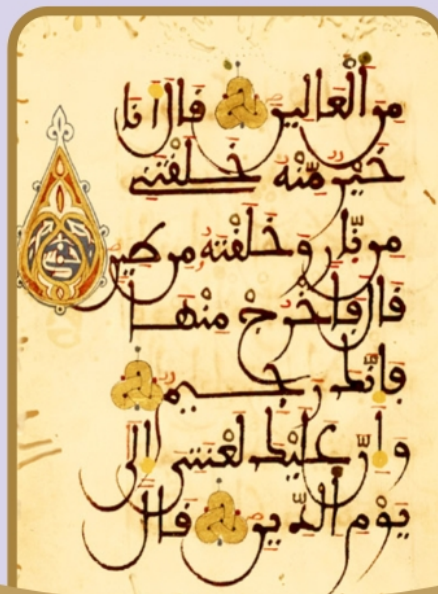 مِنَ ٱلْعَالِينَ قَالَ أَنَا
خَيْرٌ مِّنْهُ خَلَقْتَنِي
مِن نَّارٍ وَخَلَقْتَهُ مِن طِينٍ
قَالَ فَاخْرُجْ مِنْهَا
فَإِنَّكَ رَجِيمٌ
وَإِنَّ عَلَيْكَ لَعْنَتِي إِلَىٰ
يَوْمِ ٱلدِّينِ قَالَ